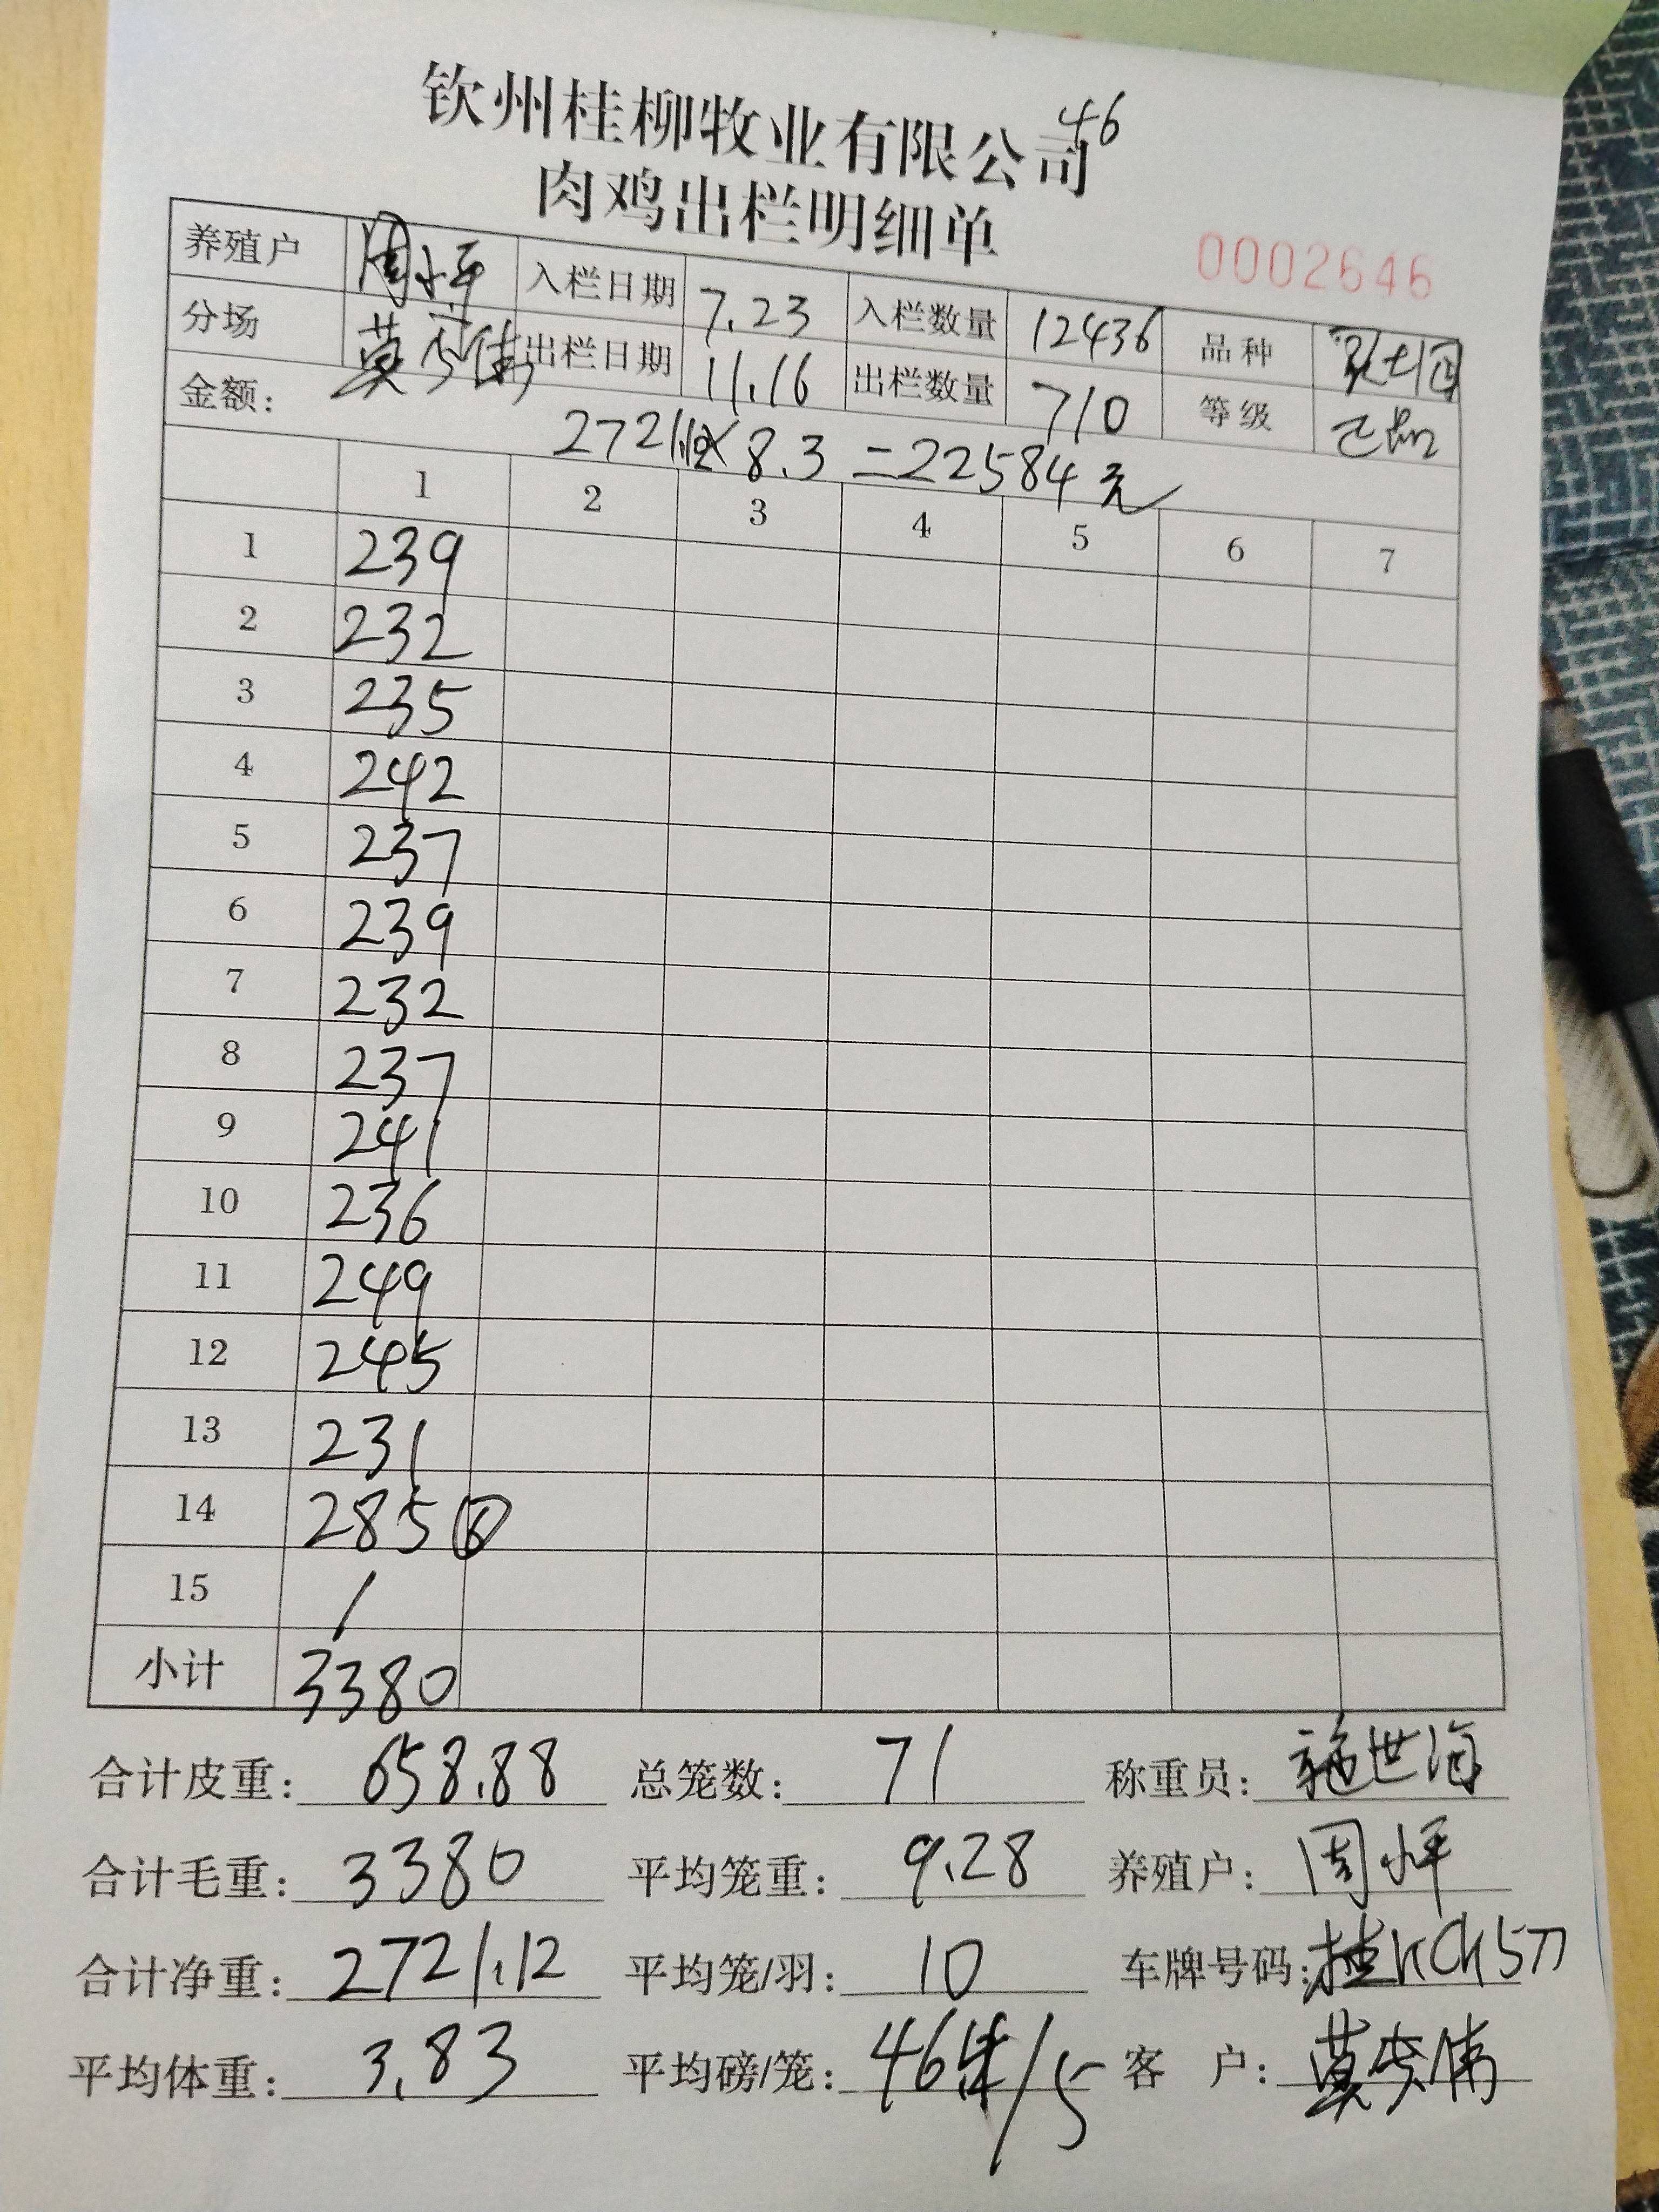 46
钦州桂柳牧业有限公司
肉鸡出栏明细单
0002646
养殖户 周坪 入栏日期 7.23 入栏数量 12436 品种
分场 出栏日期 11.16 出栏数量 710 等级
金额: 2721.12×8.3=22584元
1 2 3 4 5 6 7
1 239
2 232
3 235
4 242
5 237
6 239
7 232
8 237
9 241
10 236
11 249
12 245
13 231
14 285 ⑥
15 /
小计 3380
合计皮重: 658.88 总笼数: 71 称重员: 施世海
合计毛重: 3380 平均笼重: 9.28 养殖户: 周坪
合计净重: 2721.12 平均笼/羽: 10 车牌号码:
平均体重: 3.83 平均磅/笼: 客 户: